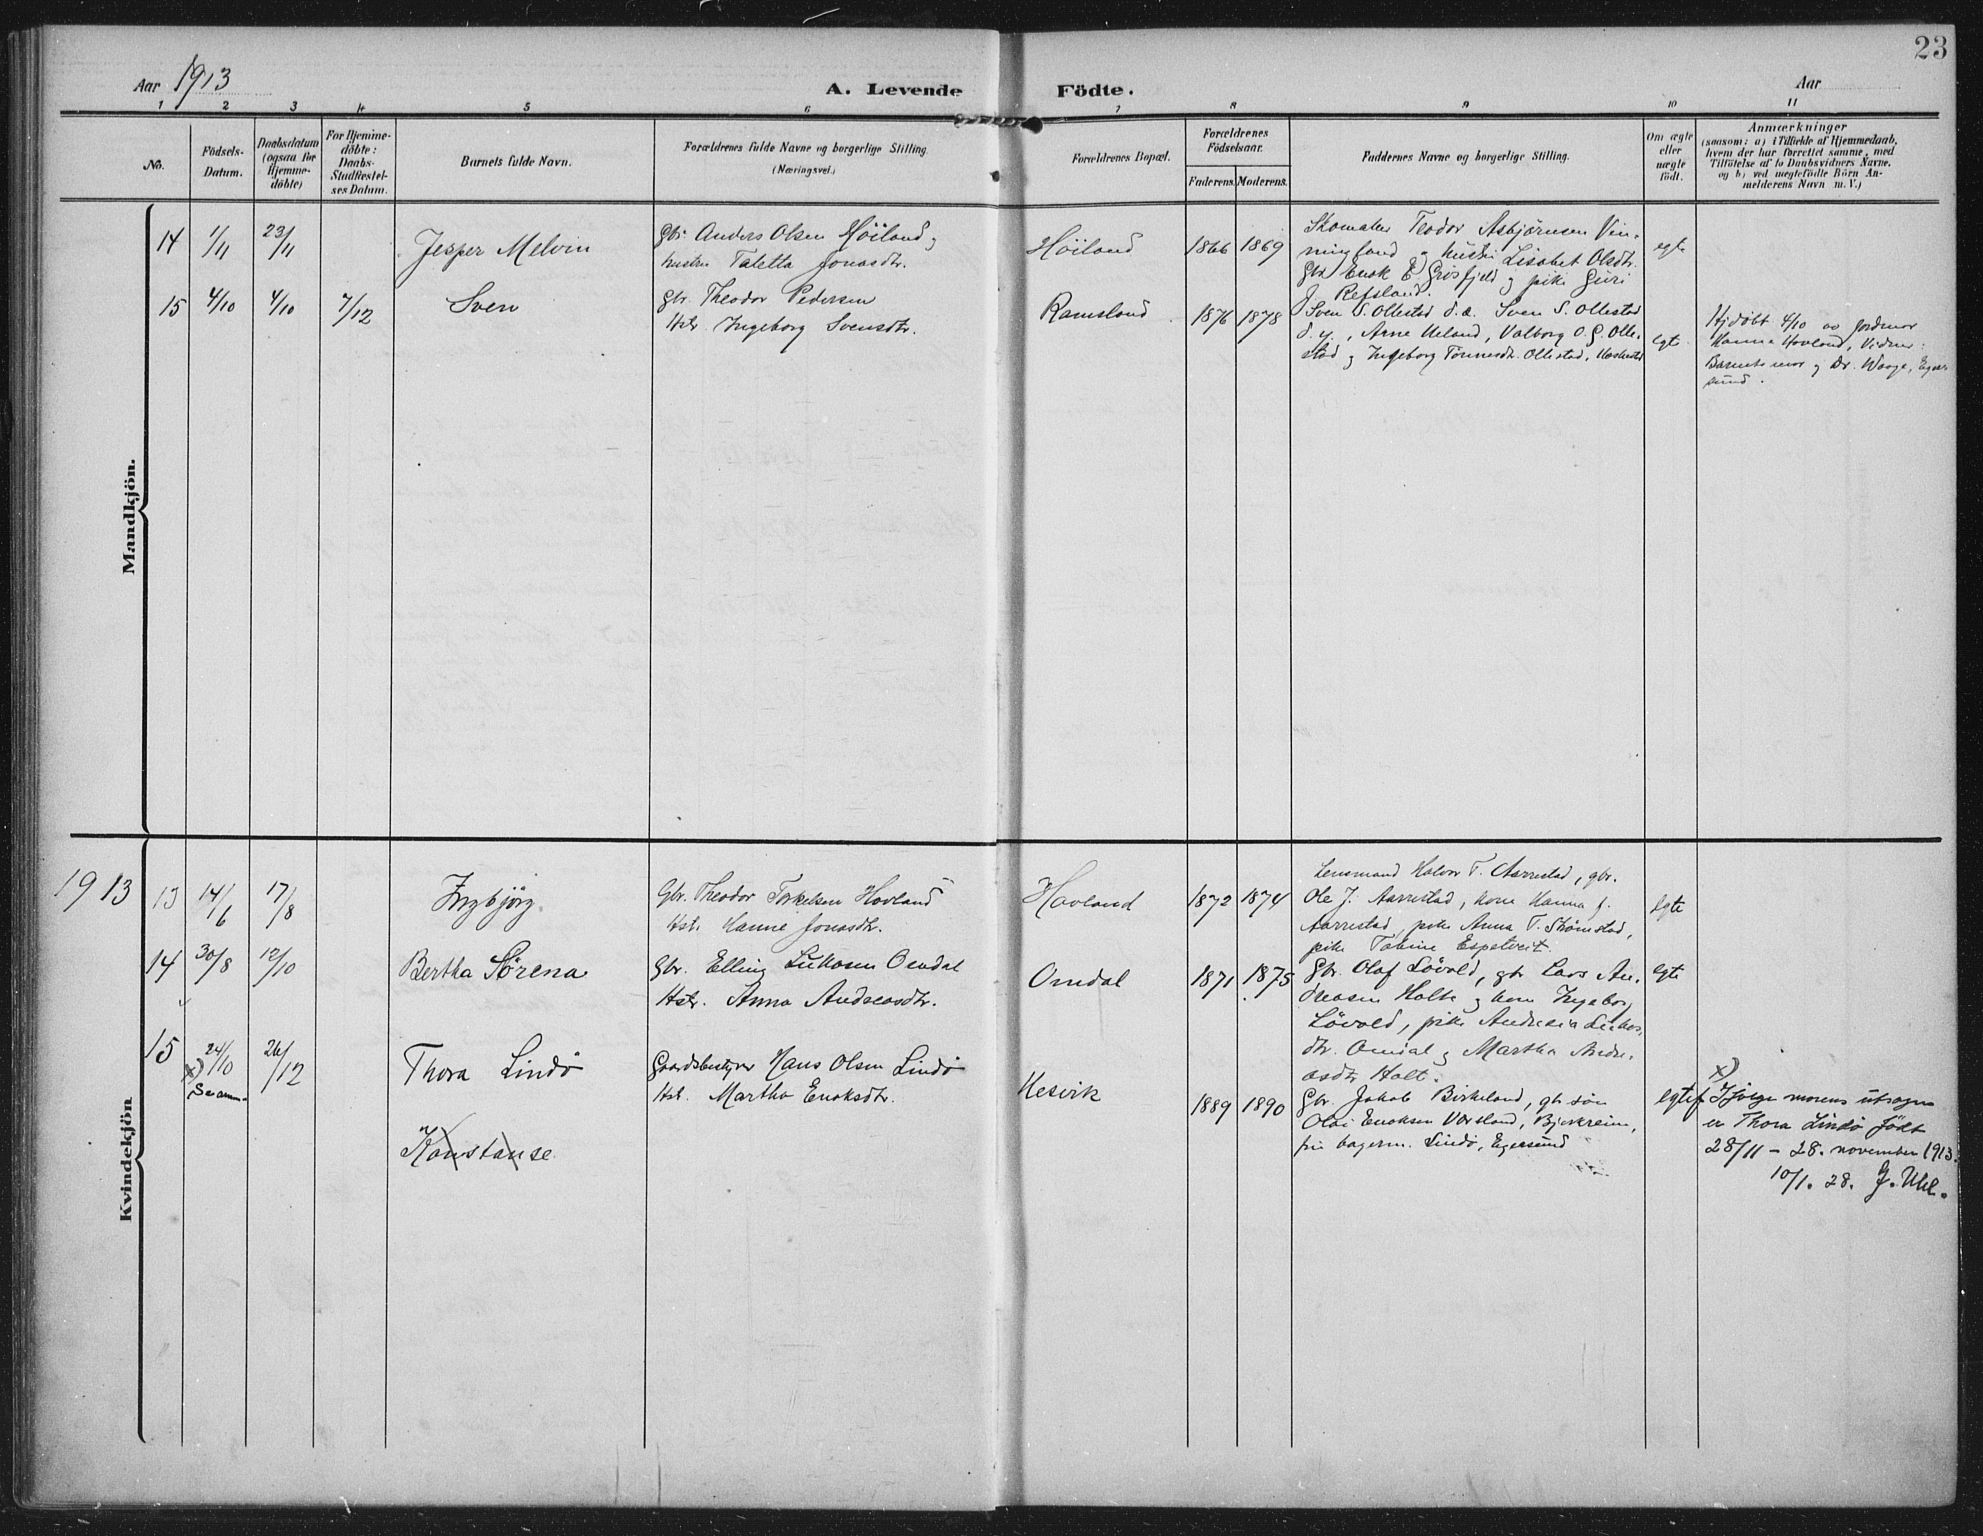 23
Aar 1913
A. Levende Födte.
Aar
1 2 3 4 5 6 7 8 9 10 11
No.
Födsels-
Datum.
Daabsdatum
(ogsaa for
Hjemme-
döbte)
For Hjemme-
döbte:
Daabs-
Stadfæstel-
ses Datum.
Barnets fulde Navn.
Forældrenes fulde Navne og borgerlige Stilling
(Næringsvei.)
Forældrenes Bopæl.
Forældrenes
Födselsaar.
Faderens. Moderens.
Faddernes Navne og borgerlige Stilling.
Om ægte
eller
uægte
födt.
Anmærkninger
(saasom: a) i Tilfælde af Hjemmedaab,
hvem der har forrettet samme, med
Tilföielse af to Daabsvidners Navne,
og b) ved uægtefödte Börn An-
melderens Navn m. V.)
Mandkjön.
14
1/11
23/11
Jesper Melvin
Gbr. Anders Olsen Höiland og
hustru Taletta Jonasdtr.
Höiland
1866 1869
Skomaker Teodor Asbjørnsen Vin-
ningland og hustru Lisabet Olsdtr.
Gbr Enok E Grøsfjeld og pike Guri
J. Refsland.
egte
15
4/10
4/10
7/12
Sven
Gbr. Theodor Pedersen
Hstr. Ingeborg Svensdtr.
Ramsland
1876 1878
Sven S. Ollestad d. æ. Sven S. Ollestad
d. y., Arne Ueland, Valborg O. G. Olle-
stad og Ingeborg Tönnesdtr. Ollestad,
egte
Hjdøbt 4/10 av Jordmor
Hanna Hovland, Vidner:
Barnets mor og Dr. Waage, Eger-
sund.
Kvindekjön
1913
13
14/6
17/8
Ingbjörg.
Gbr. Theodor Torkelsen Hovland
Hst. Hanne Jonasdtr.
Hovland
1872 1874
Lensmand Halvor T. Aarrestad, gbr.
Ole J. Aarrestad, kone Hanna J.
Aarrestad, pike Anna T. Skömstad,
pike Tabine Espetveit.
egte
14
30/8
12/10
Bertha Sørena
Gbr. Elling Lukasen Omdal
Hstr. Anna Andreasdtr.
Omdal
1871 1875
Gbr. Olaf Lövold, gbr Lars An-
dreasen Holte og kone Ingeborg
Lövold, pike Andrea Lukas-
dtr. Omdal og Martha Andre-
asdtr Holt.
egte
15
24/10
x)
Se anm.
26/12
Thora Lindö
Konstanse
Gaardsbestyrer Hans Olsen Lindö
Hst. Martha Enoksdtr.
Hesvik
1889 1890
Gbr. Jakob Birkeland, gbr. søn
Olai Enoksen Versland, Bjerkreim,
frk bagerm. Lindö, Egersund
egtef
x)
Ifølge morens utsagn
er Thora Lindö født
28/11 - 28. november 1913.
10/1. 28. J. Uhl.